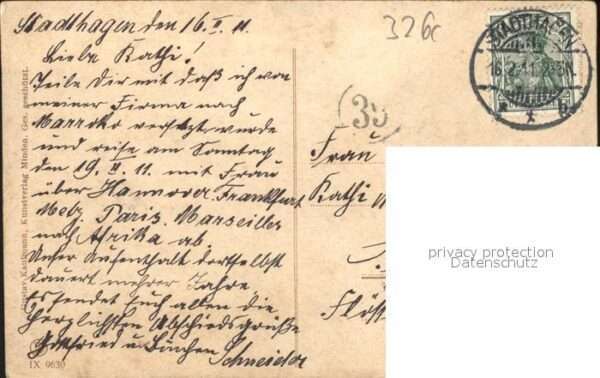 Stadthagen den 16. II. 11.
Liebe Kathi!
Teile Dir mit daß ich von
meiner Firma nach
Marroko versetzt wurde
und reise am Sonntag
den 19. II. 11. mit Frau
über Hannover Frankfurt
Metz Paris. Marseiller
nach Afrika ab.
Unser Aufenthalt dortselbst
dauert mehrer Jahre.
Es sendet Euch allen die
herzlichsten Abschiedsgrüße
Gottfried u.
Schneider
326c
39
STADTHAGEN
16.2.11
Frau
Kathi
Flöss
privacy protection
Datenschutz
Gustav Kaufmann, Kunstverlag Minden. Ges. geschützt.
IX 9630